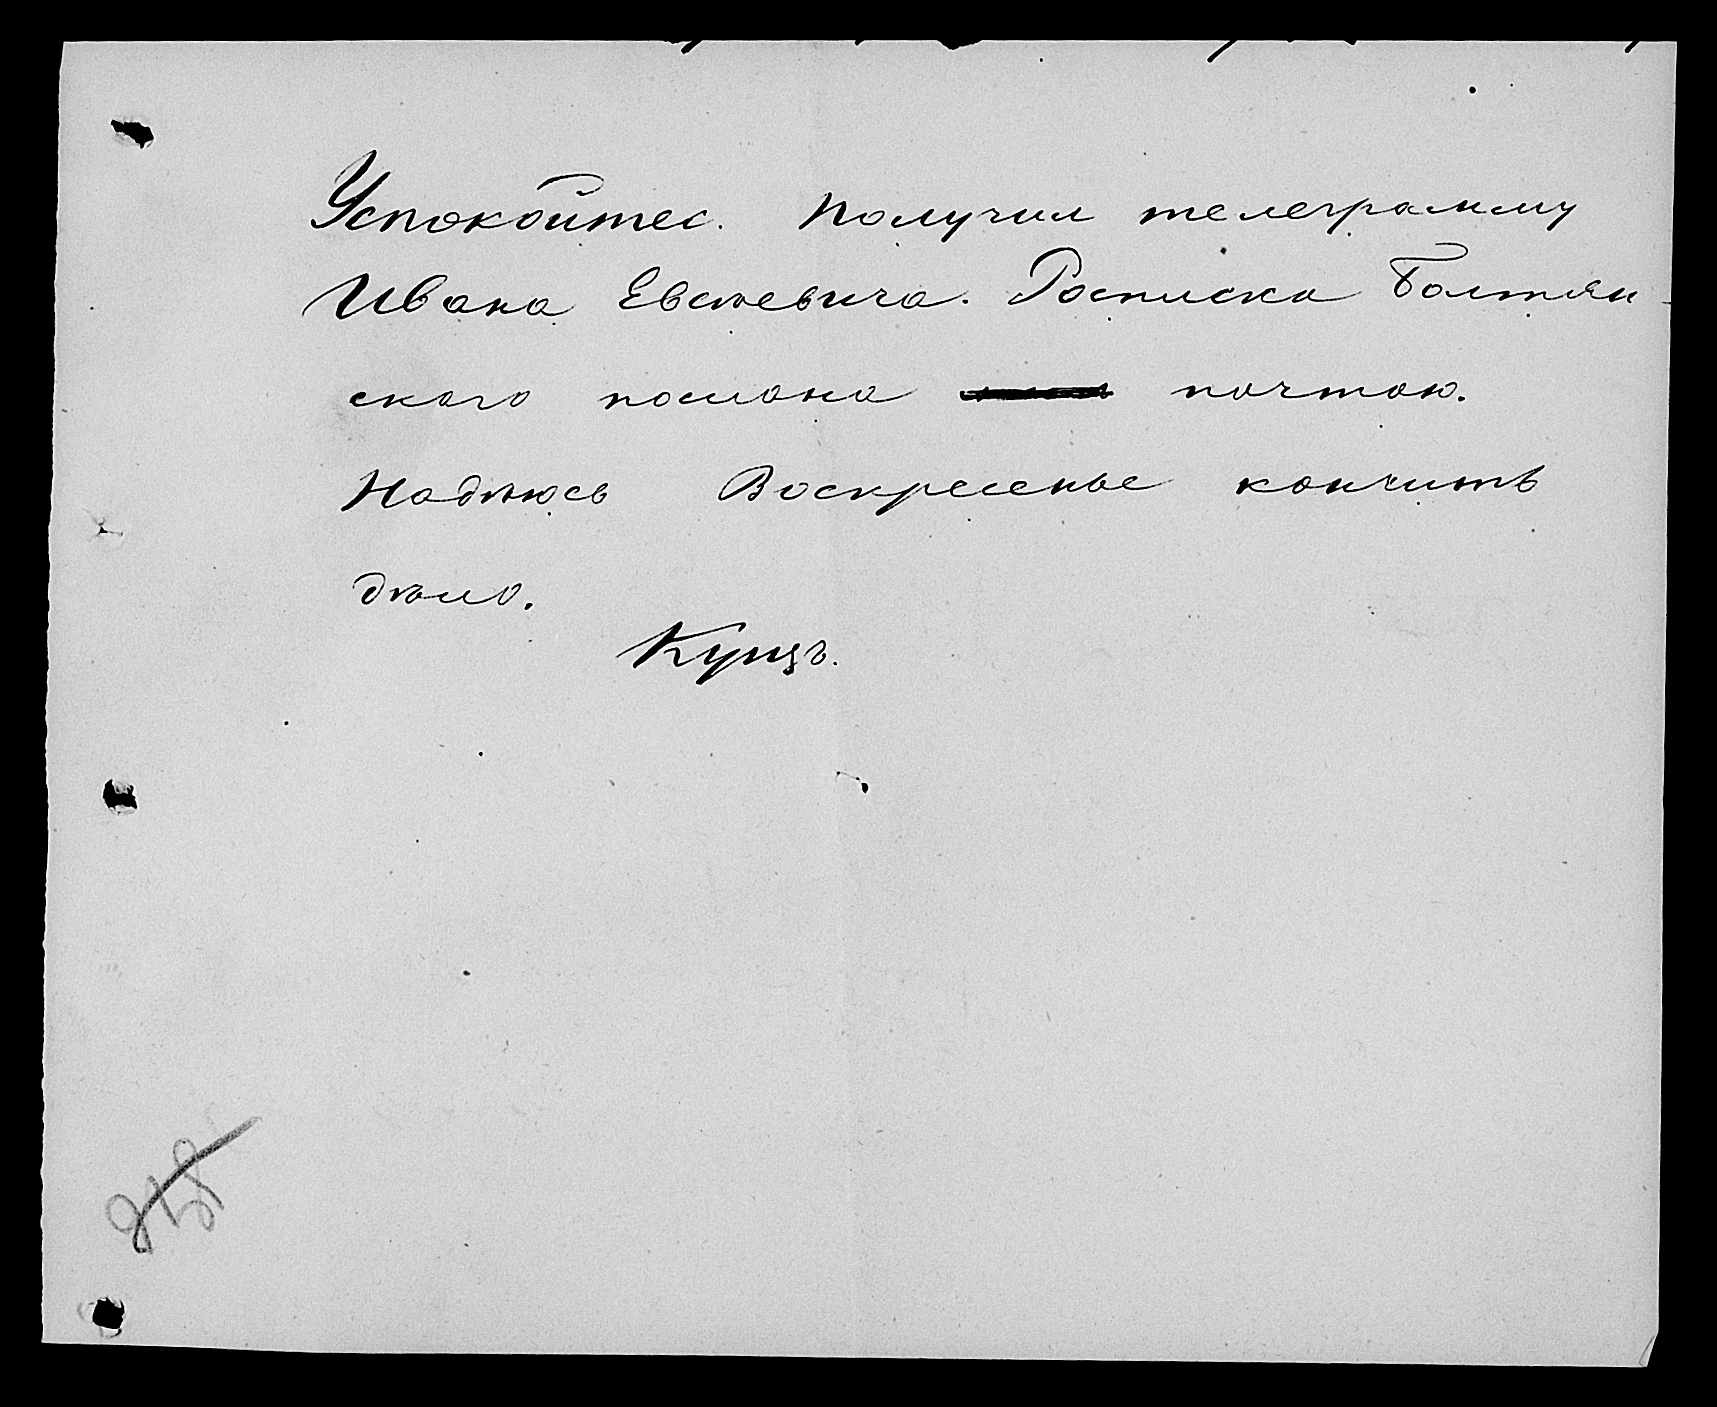 Успокойтес. Получил телеграмму
Ивана Евсеевича. Росписка Болтян-
ского послана почтою.
Надѣюсь Воскресенье кончить
дѣло.
Кунцъ.